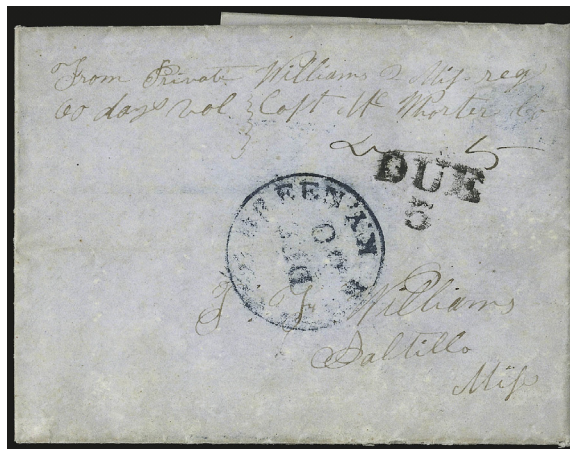 From Private Williams 2 Miss reg
60 days vol Capt Mc Whorter Co
Due 5
DUE
5
GREEN KY
DEC
J Williams
Saltillo
Miss